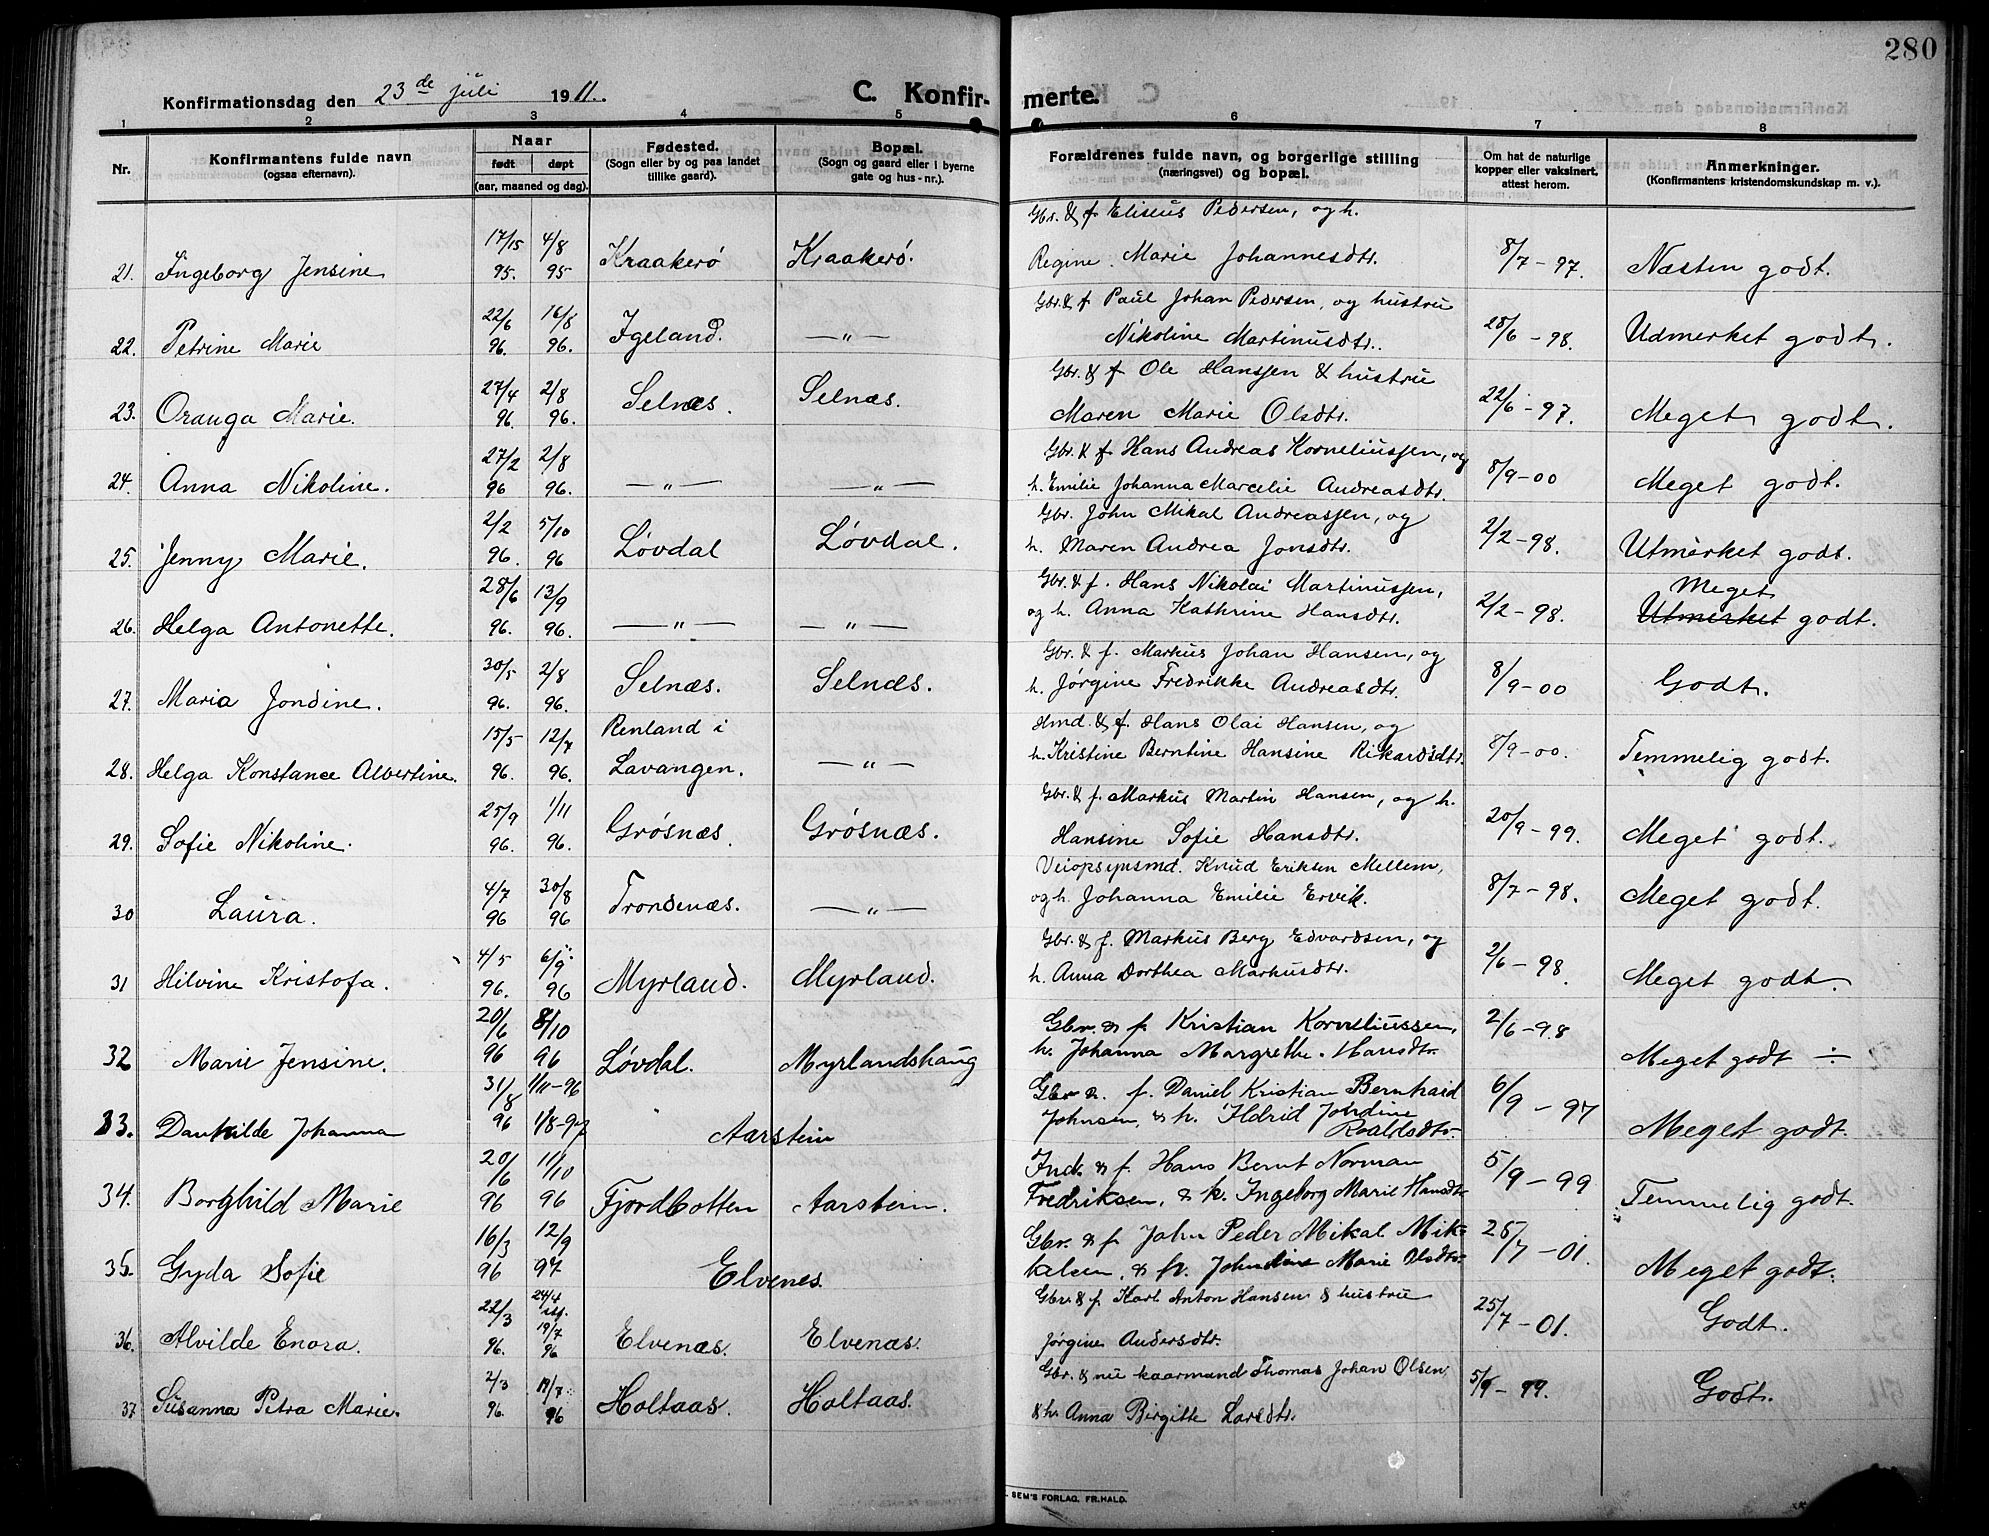 280
Konfirmationsdag den 23de juli 1911.
C. Konfirmerte.
1 2 3 4 5 6 7 8
Nr. Konfirmantens fulde navn (ogsaa efternavn). Naar født døpt (aar, maaned og dag). Fødested. (Sogn eller by og paa landet tillike gaard). Bopæl. (Sogn og gaard eller i byerne gate og hus-nr.). Forældrenes fulde navn, og borgerlige stilling (næringsvei) og bopæl. Om hat de naturlige kopper eller vaksinert, attest herom. Anmerkninger. (Konfirmantens kristendomskundskap m. v.).
Gbr. & f. Eliseus Pedersen, og h.
21. Ingeborg Jensine 95. 4/8 95 Kraakerø Kraakerø. Regine Marie Johannesdtr. 8/7-97. Næsten godt.
Gbr. & f Paul Johan Pedersen, og hustru
22. Petrine Marie 22/6 96. 16/8 96. Igeland. —"— Nikoline Martinusdtr. 28/6-98. Udmerket godt.
Gbr. & f Ole Hanssen & hustru
23. Oranga Marie. 27/4 96. 2/8 96. Selnæs. Selnæs. Maren Marie Olsdtr. 22/6-97. Meget godt.
Gbr. & f Hans Andreas Korneliussen, og
24. Anna Nikoline. 27/2 96 2/8 96. —"— —"— h. Emilie Johanna Marcelie Andreasdtr. 8/9-00 Meget godt.
Gbr. John Mikal Andreassen, og
25. Jenny Marie. 2/2 96. 5/10 96 Løvdal Løvdal. h. Maren Andrea Jonsdtr. 2/2-98. Utmerket godt.
Gbr. & f. Hans Nikolai Martinussen, Meget
26. Helga Antonette. 28/6 96. 13/9 96. —"— —"— og h. Anna Kathrine Hansdtr. 2/2-98. Utmerket godt.
Gbr. & f. Markus Johan Hansen, og
27. Maria Jondine. 30/5 96. 2/8 96. Selnæs. Selnæs. h. Jørgine Fredrikke Andreasdtr. 8/9-00 Godt.
Renland i Hmd. & f. Hans Olai Hansen, og
28. Helga Konstance Albertine. 15/5 96. 12/7 96. Lavangen. —"— h. Kristine Berntine Hansine Rikardsdtr. 8/9-00. Temmelig godt.
Gbr. & f. Markus Martin Hansen, og h.
29. Sofie Nikoline. 25/9 96. 1/11 96. Grøsnæs. Grøsnæs. Hansine Sofie Hansdtr. 20/9-99. Meget godt.
Veiopsynsmd. Knud Eriksen Mellem,
30 Laura. 4/7 96 30/8 96 Trondenæs. —"— og h. Johanna Emilie Ervik. 8/7-98. Meget godt.
Gbr. & f. Markus Berg Edvardsen, og
31 Hilvine Kristofa. 4/5 96. 6/9 96 Myrland. Myrland. h. Anna Dorthea Markusdtr. 2/6-98. Meget godt.
Gbr. & f. Kristian Korneliussen,
32 Marie Jensine. 20/6 96 8/10 96 Løvdal. Myrlandshaug h. Johanna Margrethe Hansdtr. 2/6-98 Meget godt ÷
f. Daniel Kristian Bernhard
33. Johanna 31/8 96 1/11-96 1/8-97 Aarstein Johnsen, & h. Ildrid Jondine Roaldsdtr. 6/9-97 Meget godt.
Ind. & f. Hans Bernt Norman
34. Borghild Marie 20/6 96 11/10 96 Fjordbotten Aarstein. Fredriksen, & h. Ingeborg Marie Hansdtr. 5/9-99 Temmelig godt.
Gbr. & f. John Peder Mikal Mik-
35. Gyda Sofie 16/3 96 12/9 97 Elvenes. kalsen, & h. Marie Olsdtr. 25/7-01. Meget godt.
Gbr. & f. Karl Anton Hansen & hustru
36. Alvilde Enora. 22/3 96. 24/4 19/7 96 Elvenæs. Elvenæs. Jørgine Andersdtr. 25/7-01. Godt.
Gbr. & nu kaarmand Thomas Johan Olsen
37 Susanna Petra Marie. 2/3 96. 19/7 96 Holtaas. Holtaas. & h. Anna Birgitte Larsdtr. 5/9-99. Godt.
SEM'S FORLAG, FR.HALD.